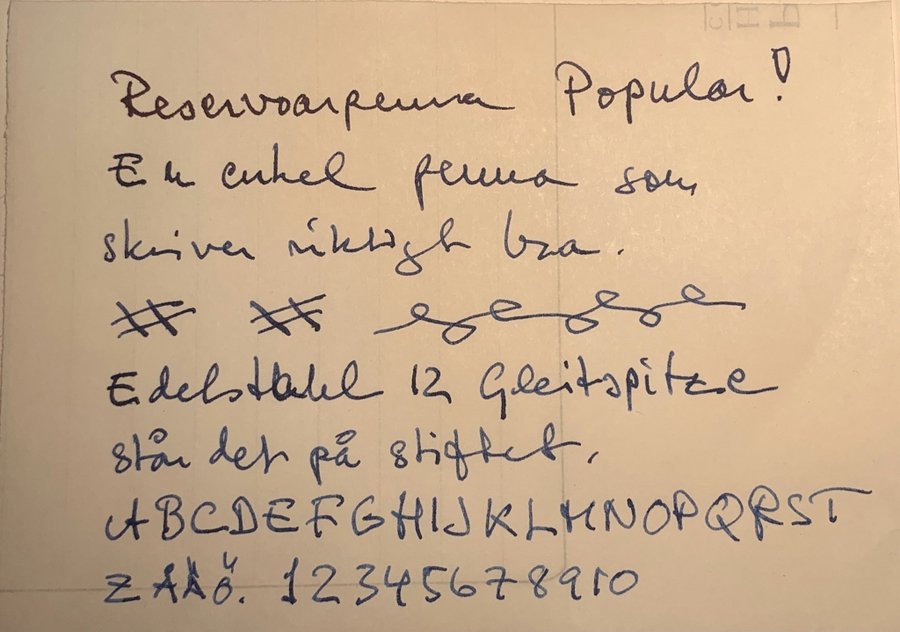 Reservoarpenna Popular!
En enkel penna som
skriver riktigt bra.
Edelstahl 12 Gleitspitze
står det på stiftet.
ABCDEFGHIJKLMNOPQRST
ZÅÄÖ. 12345678910